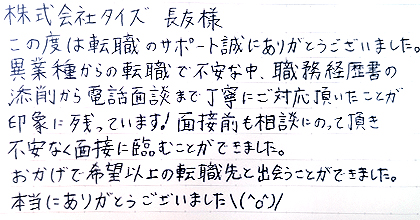 株式会社タイズ 長友様
この度は転職のサポート誠にありがとうございました。
異業種からの転職で不安な中、職務経歴書の
添削から電話面談まで丁寧にご対応頂いたことが
印象に残っています！面接前も相談にのって頂き
不安なく面接に臨むことができました。
おかげで希望以上の転職先と出会うことができました。
本当にありがとうございました\(^o^)/